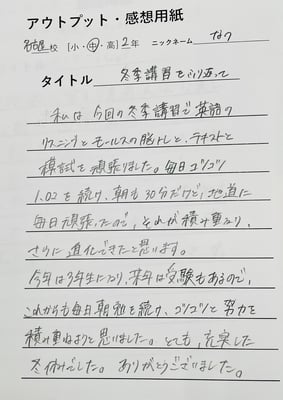 アウトプット・感想用紙
名古屋 校 [小・中・高] 2年 ニックネーム なつ
タイトル 冬季講習をふり返って
私は今回の冬季講習で英語の
リスニングとモールスの脳トレと、テキストと
模試を頑張りました。毎日コツコツ
1.02を続け、朝も30分だけど、地道に
毎日頑張ったので、それが積み重なり、
さらに進化できたと思います。
今年は3年生になり、来年は受験もあるので、
これからも毎日朝勉を続け、コツコツと努力を
積み重ねようと思いました。とても、充実した
冬休みでした。ありがとうございました。